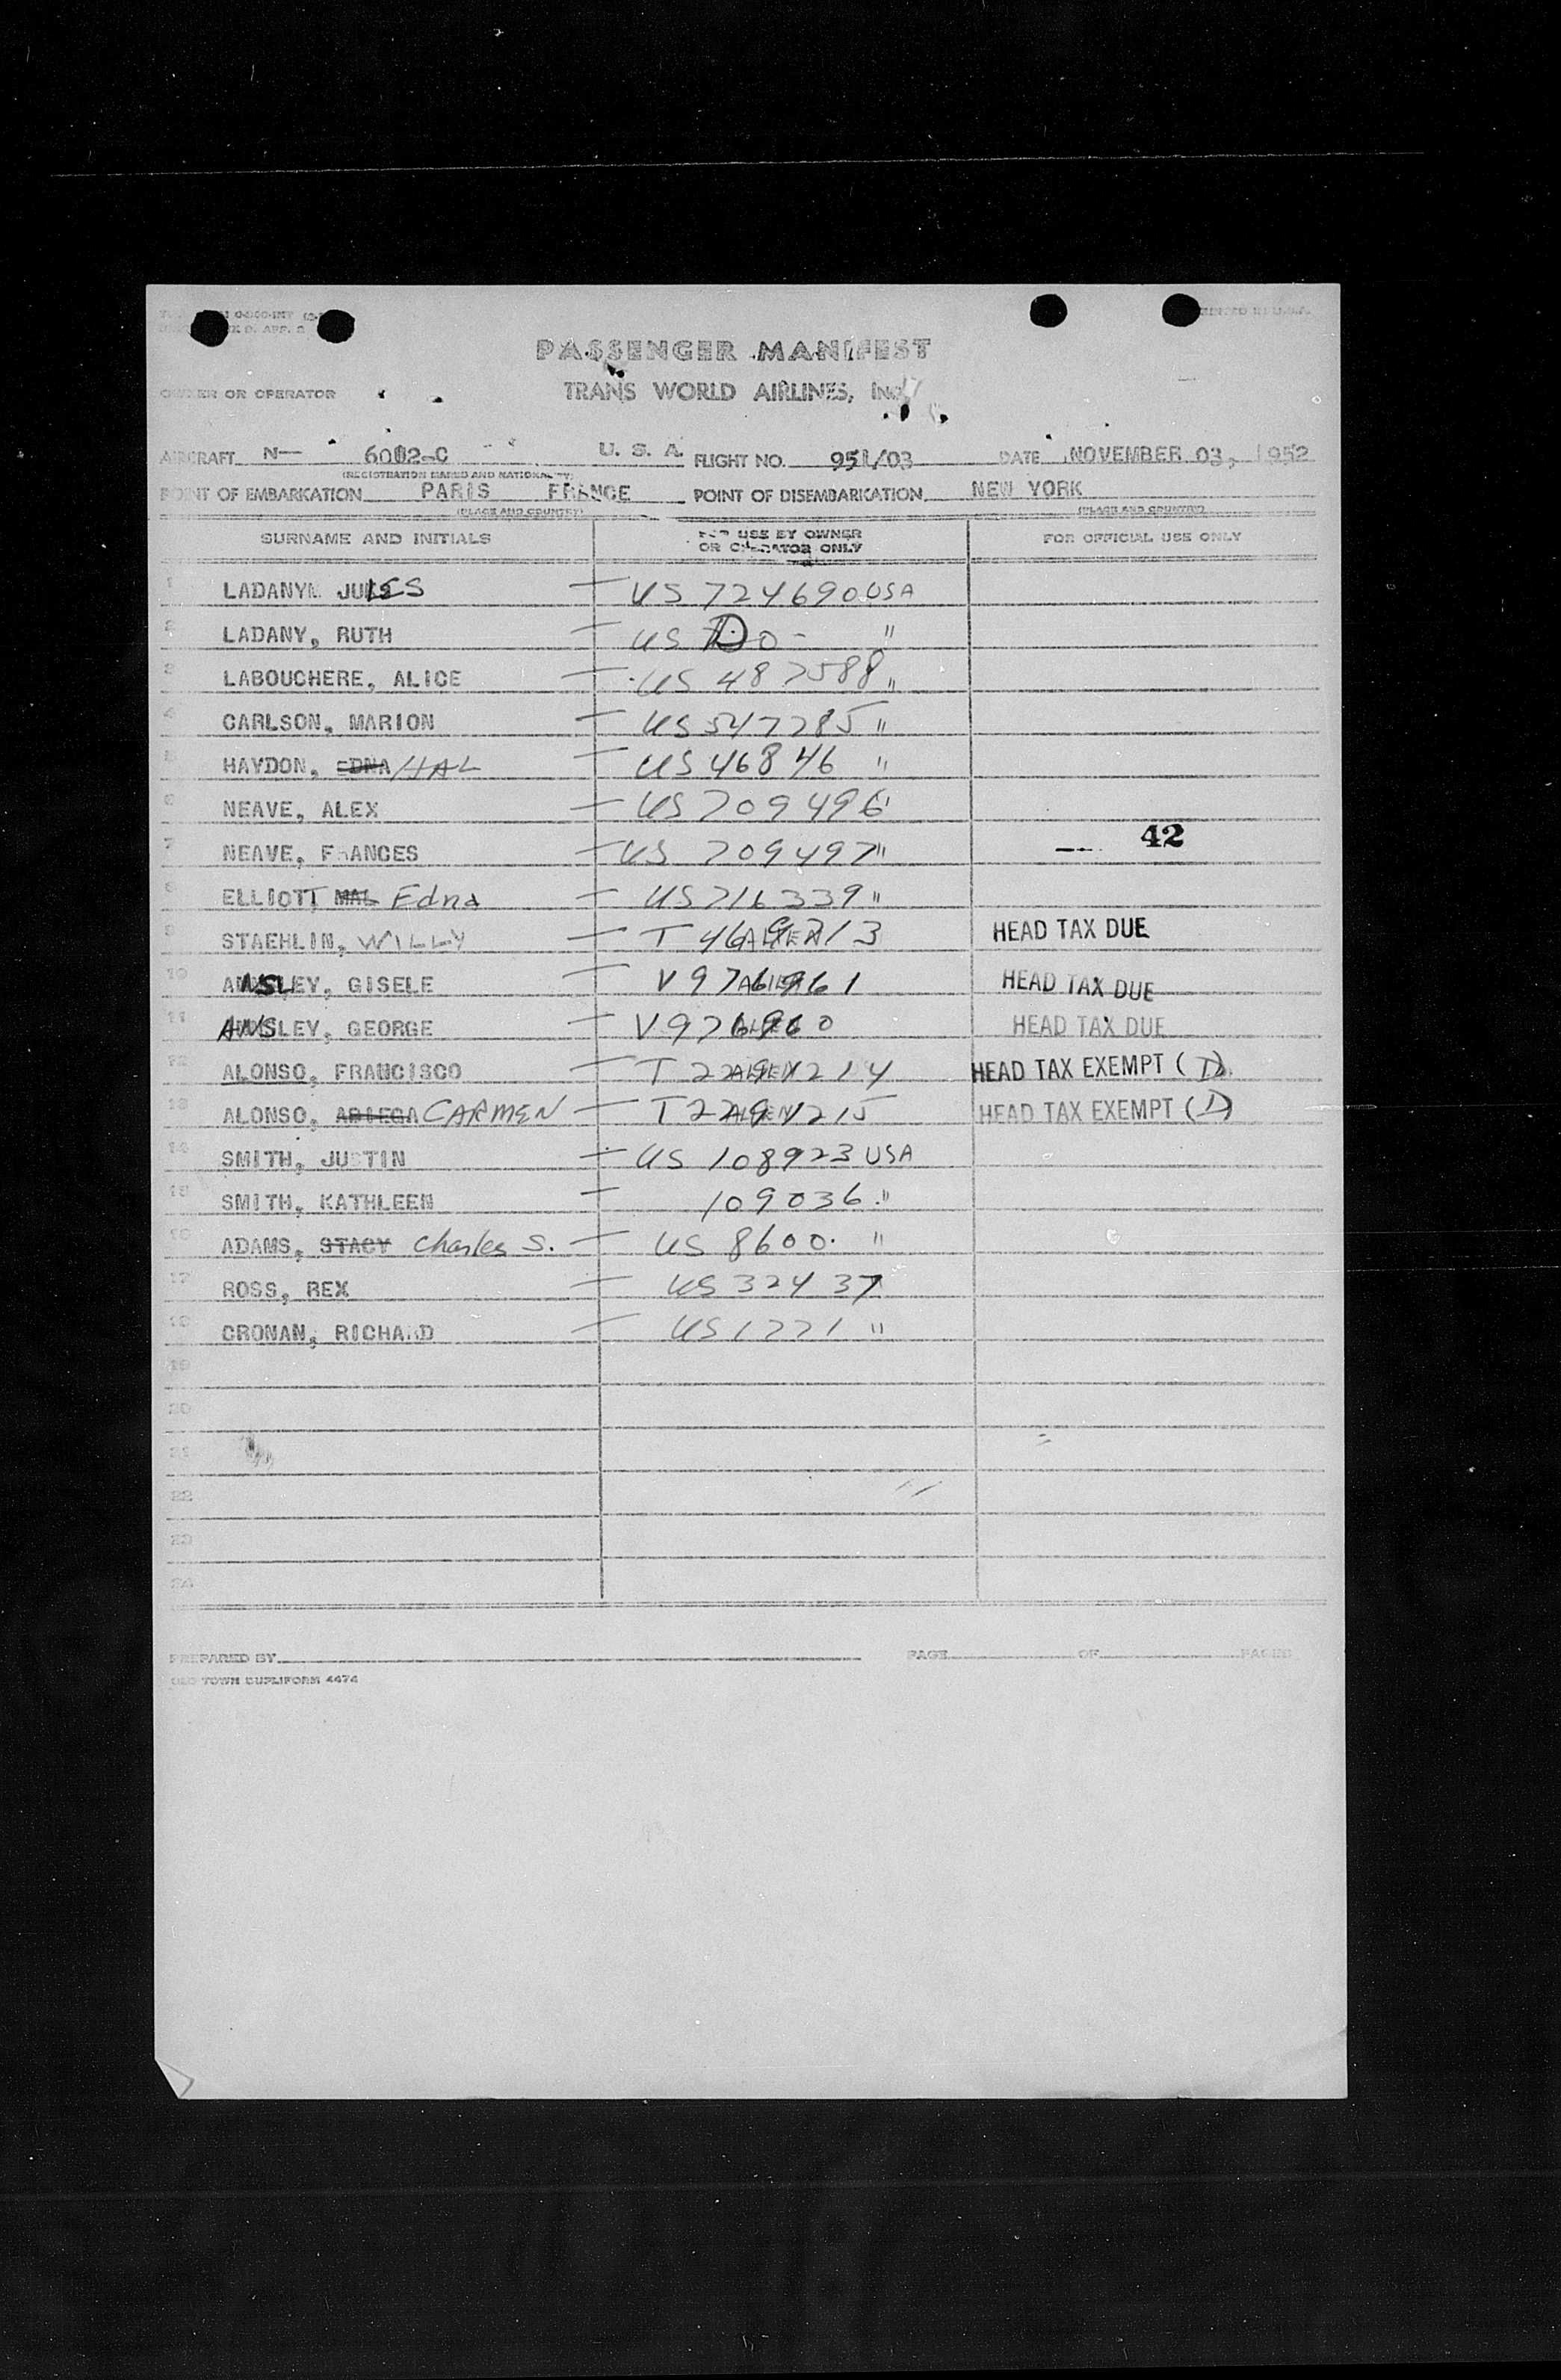 PASSENGER MANIFEST
OWNER OR OPERATOR TRANS WORLD AIRLINES, INC.
AIRCRAFT N— 6002-C U. S. A. FLIGHT NO. 951/03 DATE NOVEMBER 03, 1952
(REGISTRATION MARKS AND NATIONALITY)
POINT OF EMBARKATION PARIS FRANCE POINT OF DISEMBARKATION NEW YORK
(PLACE AND COUNTRY) (PLACE AND COUNTRY)
SURNAME AND INITIALS FOR USE BY OWNER OR OPERATOR ONLY FOR OFFICIAL USE ONLY
1 LADANY JULES — US 724690 USA
2 LADANY, RUTH — US DO - "
3 LABOUCHERE, ALICE — US 487588 "
4 CARLSON, MARION — US 547285 "
5 HAYDON, EDNA HAL — US 46846 "
6 NEAVE, ALEX — US 709496 "
7 NEAVE, FRANCES — US 709497 " 42
8 ELLIOTT MAL Edna — US 716339 "
9 STAEHLIN, WILLY — T ALIEN HEAD TAX DUE
10 ANSLEY, GISELE — V 976961 ALIEN HEAD TAX DUE
11 ANSLEY, GEORGE — V 976960 ALIEN HEAD TAX DUE
12 ALONSO, FRANCISCO — T ALIEN HEAD TAX EXEMPT (I)
13 ALONSO, CARMEN — T ALIEN HEAD TAX EXEMPT (I)
14 SMITH, JUSTIN — US 108923 USA
15 SMITH, KATHLEEN — 109036 "
16 ADAMS, STACY Charles S. — US 8600 "
17 ROSS, REX — US 32437
18 CRONAN, RICHARD — US 1771 "
19
20
21
22
23
24
PREPARED BY PAGE OF PAGES
OLD TOWN DUPLIFORM 4474